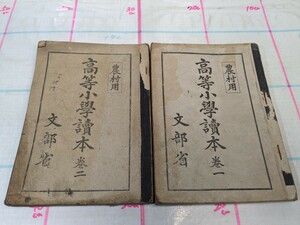 農村用
高等小學讀本 卷二
文部省
農村用
高等小學讀本 卷一
文部省